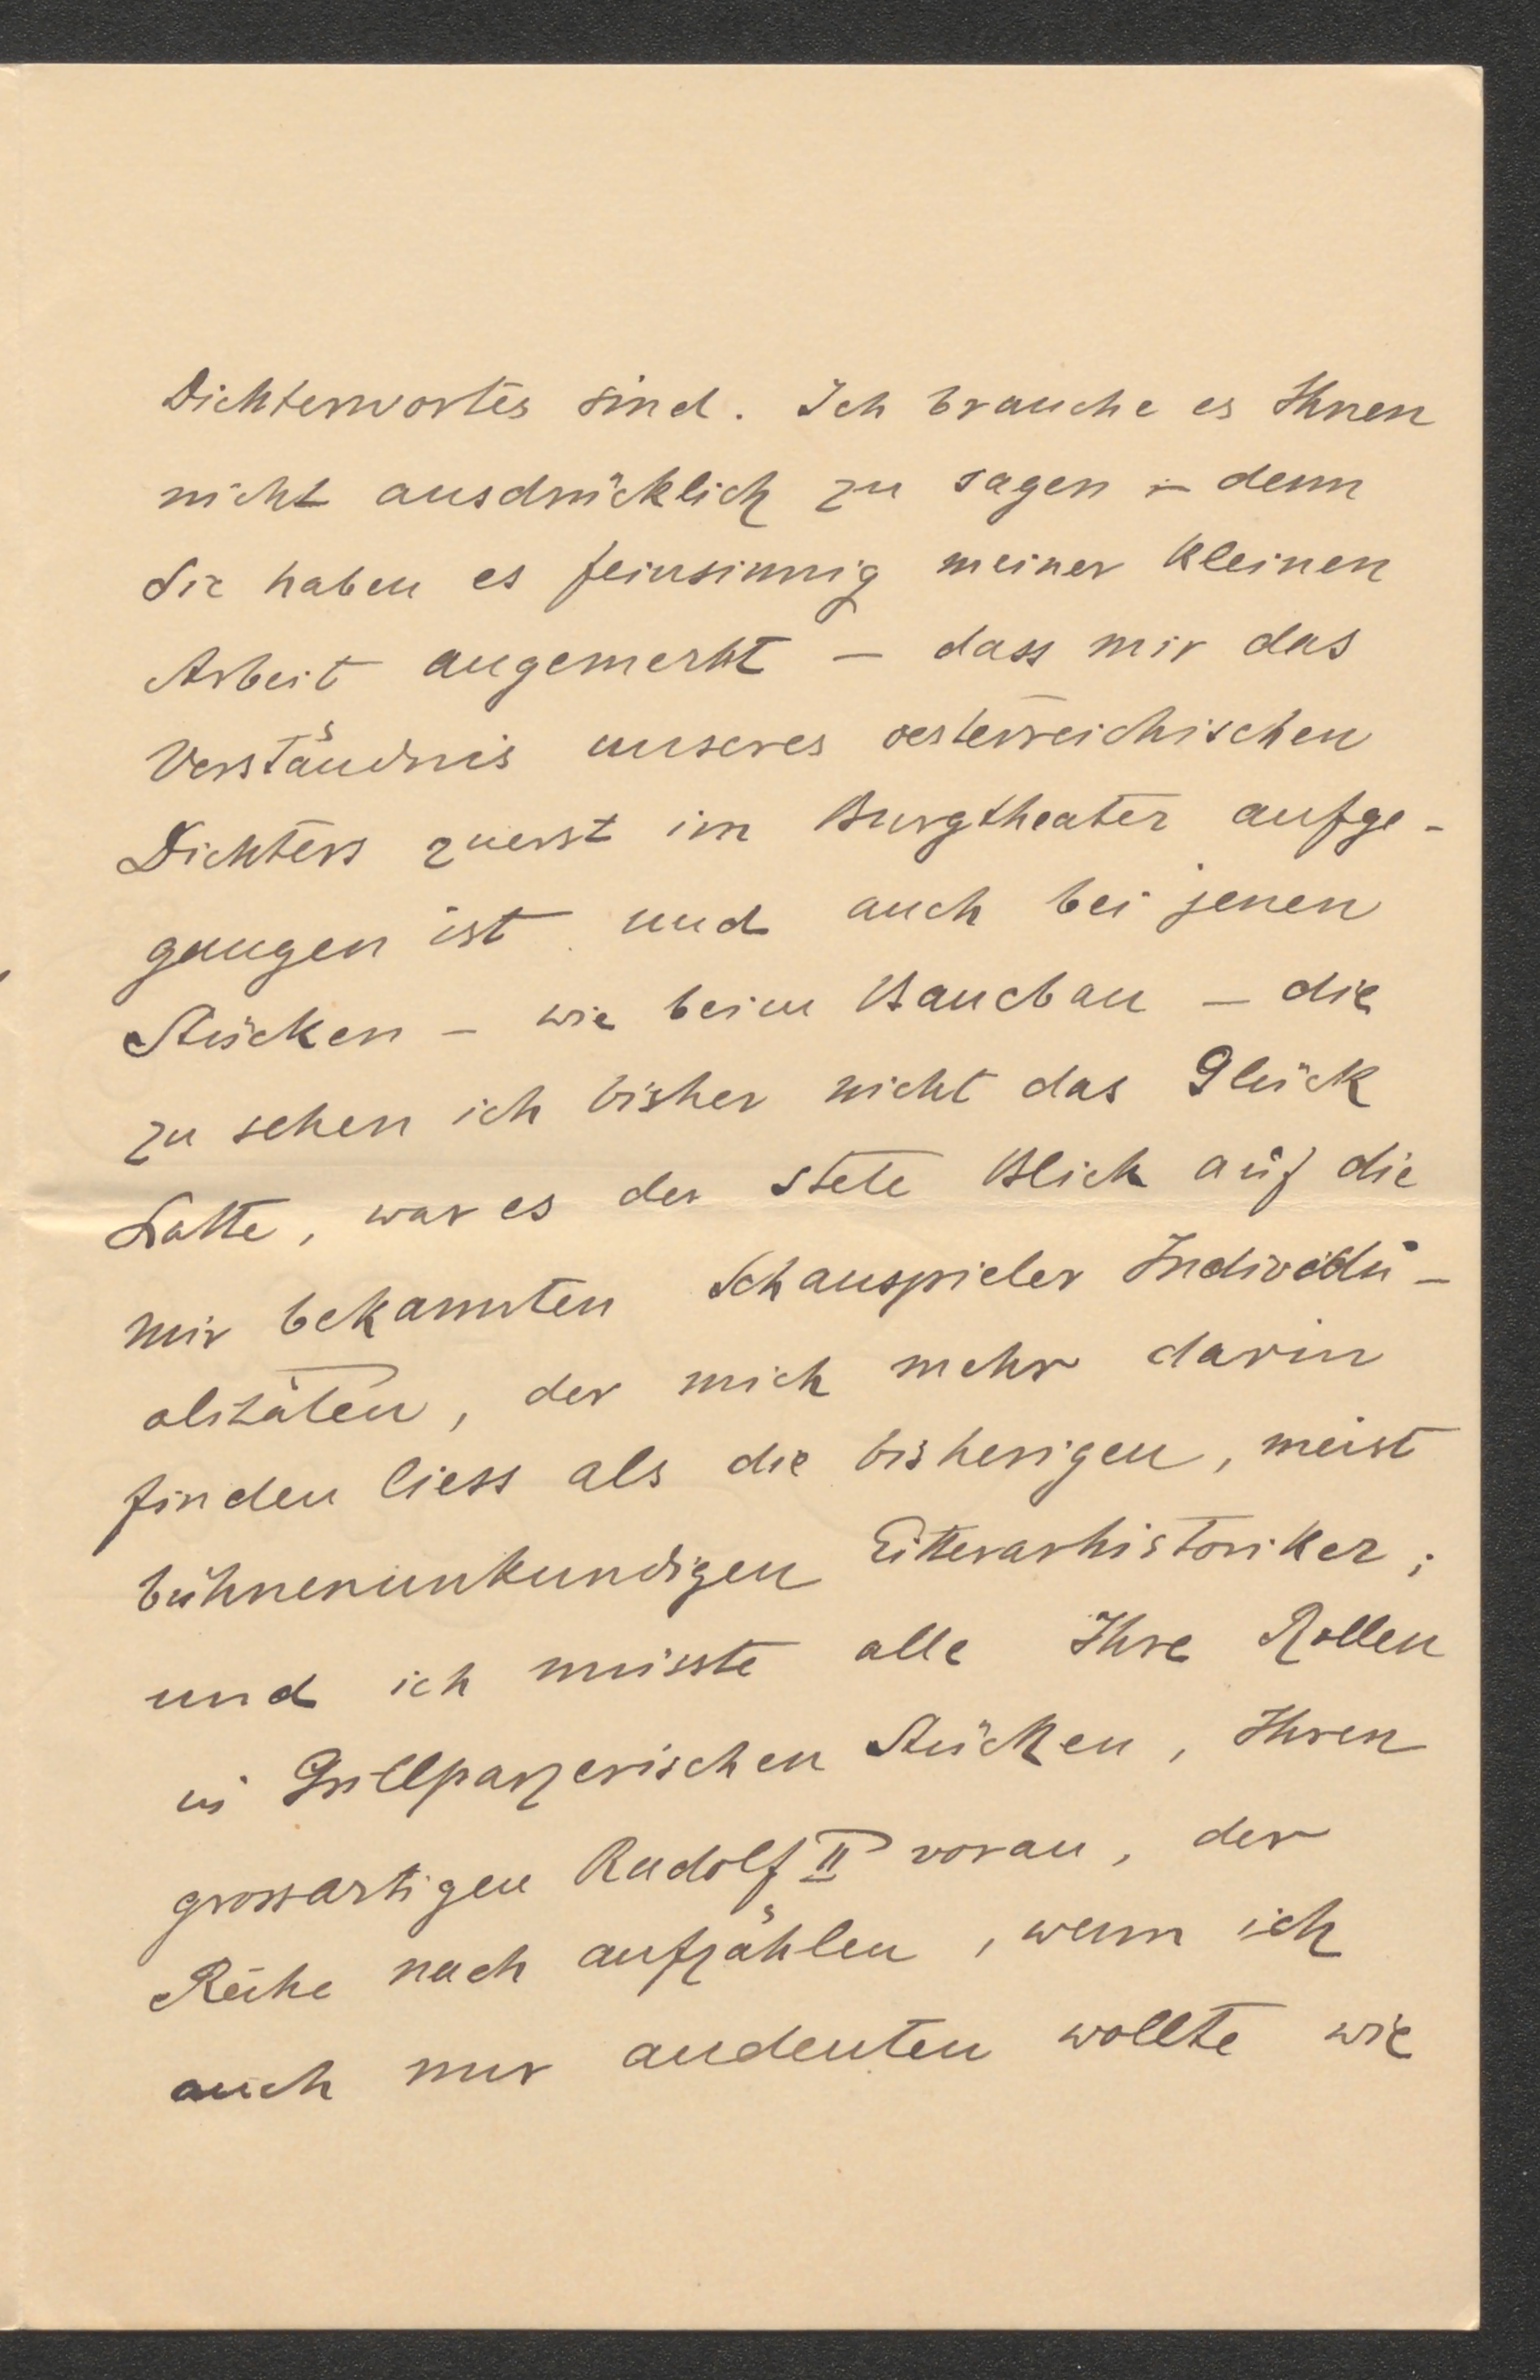 Dichterwortes sind. Ich brauche es Ihnen
nicht ausdrücklich zu sagen – denn
Sie haben es feinsinnig meiner kleinen
Arbeit angemerkt – dass mir das
Verständnis unseres oesterreichischen
Dichters zuerst im Burgtheater aufge-
gangen ist und auch bei jenen
Stücken – wie beim Bancban – die
zu sehen ich bisher nicht das Glück
hatte, war es der stete Blick auf die
mir bekannten Schauspieler Individu-
alitäten, der mich mehr darin
finden liess als die bisherigen, meist
bühnenunkundigen Litterarhistoriker;
und ich müsste alle Ihre Rollen
in Grillparzerischen Stücken, Ihren
grossartigen Rudolf II voran, der
Reihe nach aufzählen, wenn ich
auch nur andeuten wollte wie